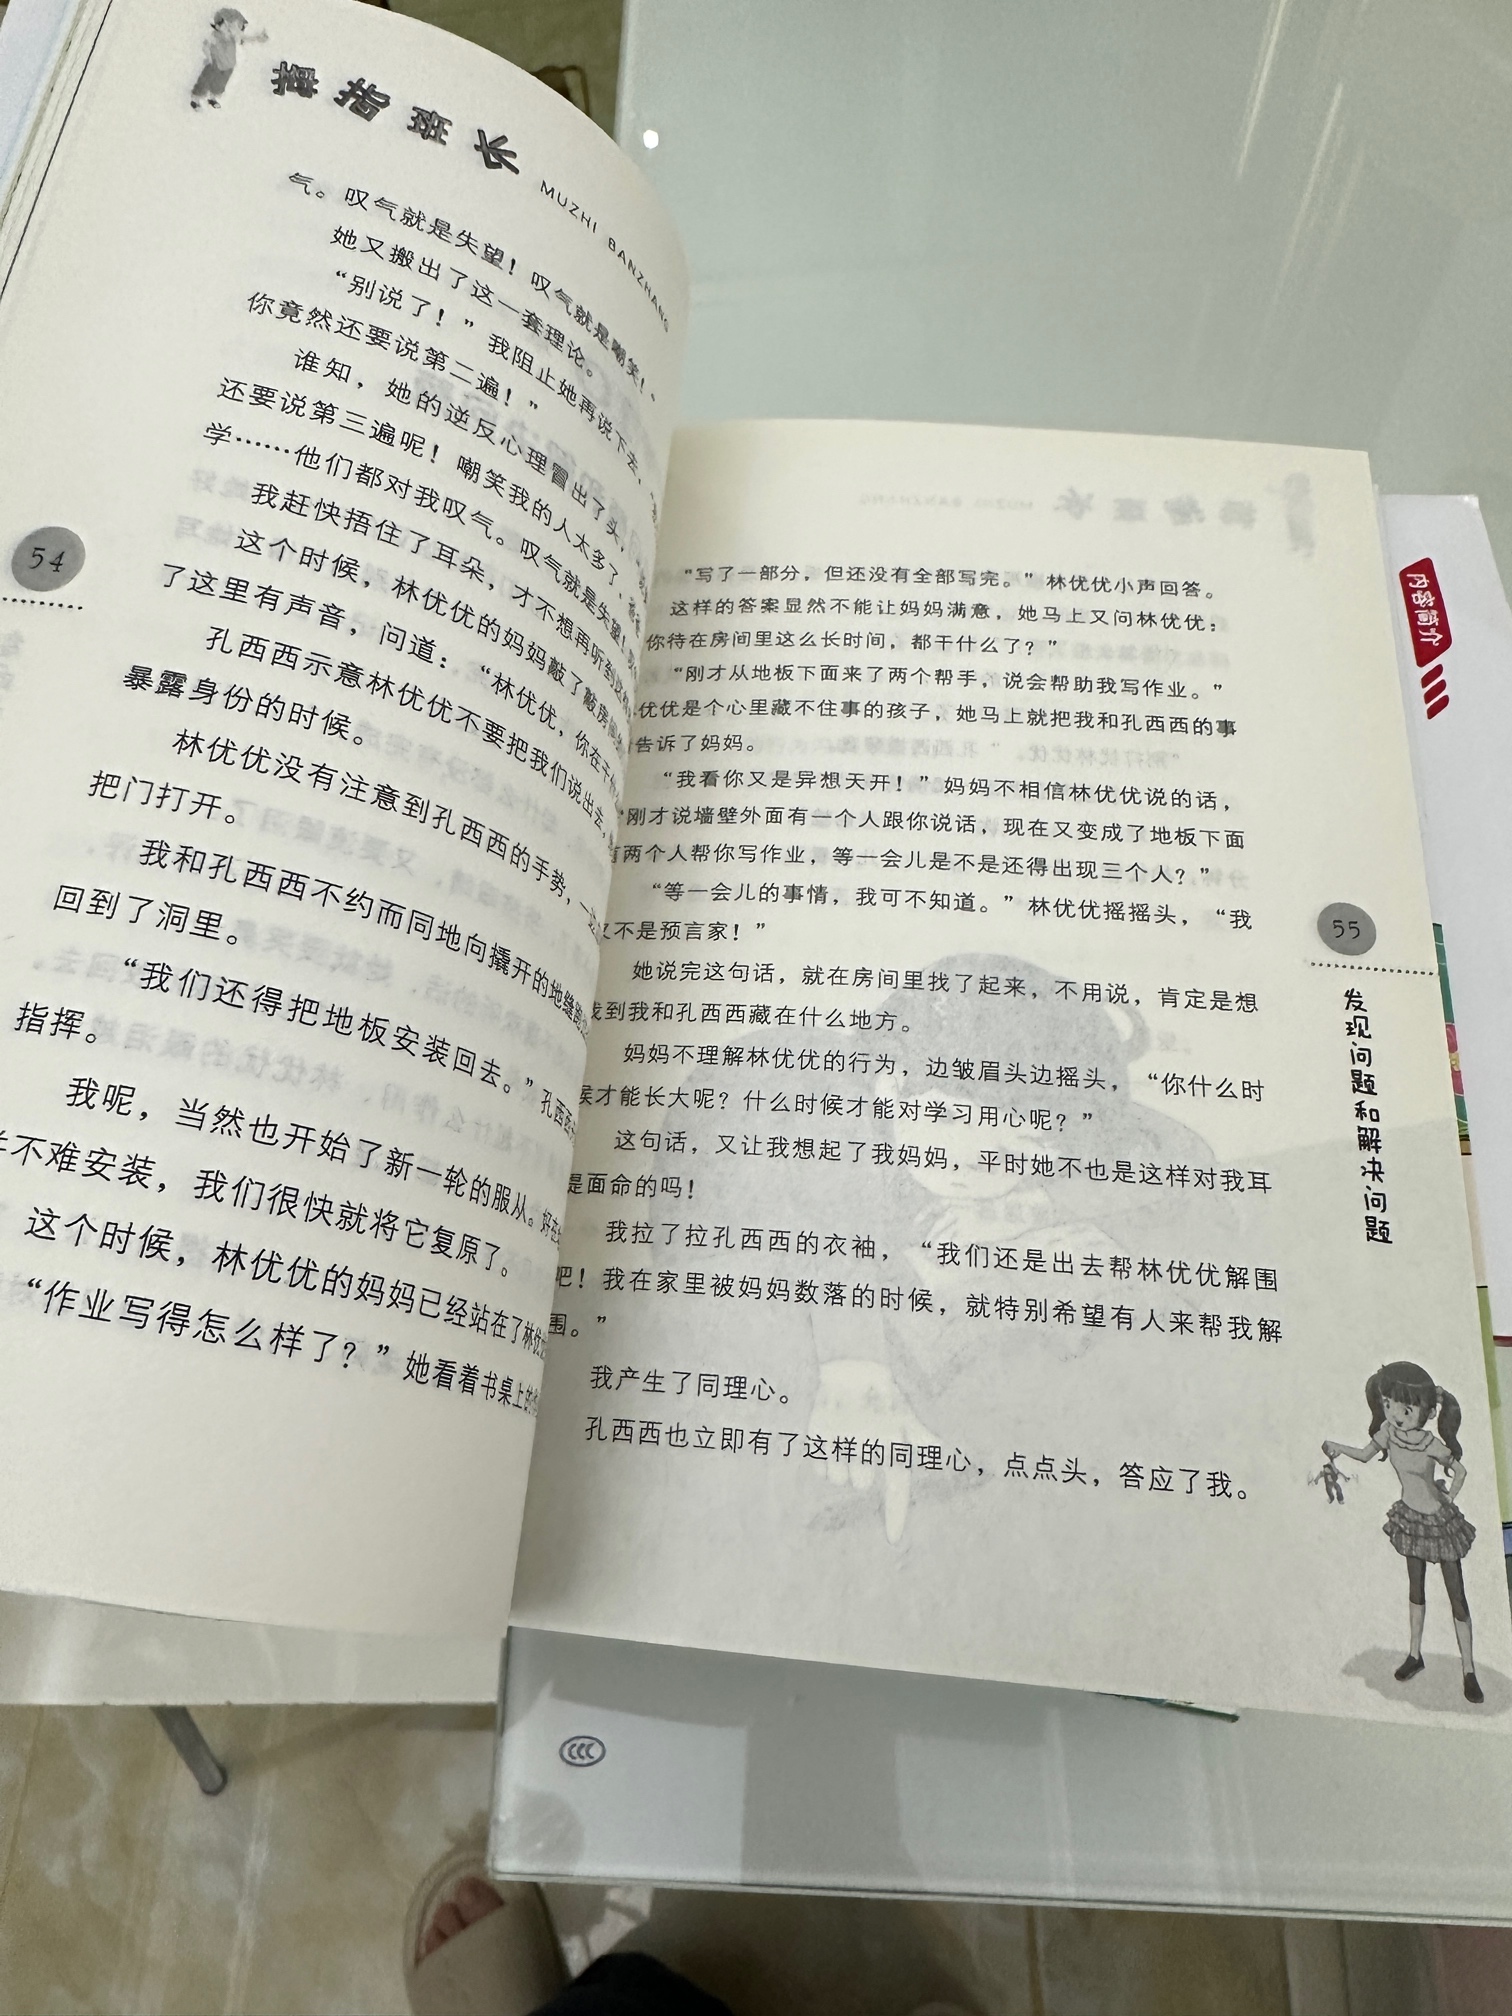 拇指班长
MUZHI BANZHANG
气。叹气就是失望！叹气就是嘲笑！”
她又搬出了这一套理论。
“别说了！”我阻止她再说下去，
你竟然还要说第二遍！”
谁知，她的逆反心理冒出了头，
还要说第三遍呢！嘲笑我的人太多了，
学……他们都对我叹气。叹气就是失望！
我赶快捂住了耳朵，才不想再听到
这个时候，林优优的妈妈敲了敲房间
了这里有声音，问道：“林优优，你在干什
孔西西示意林优优不要把我们说出去，
暴露身份的时候。
林优优没有注意到孔西西的手势，一
把门打开。
我和孔西西不约而同地向撬开的地缝
回到了洞里。
“我们还得把地板安装回去。”孔西西
指挥。
我呢，当然也开始了新一轮的服从。好在
并不难安装，我们很快就将它复原了。
这个时候，林优优的妈妈已经站在了林优
“作业写得怎么样了？”她看着书桌上的
54
“写了一部分，但还没有全部写完。”林优优小声回答。
这样的答案显然不能让妈妈满意，她马上又问林优优：
你待在房间里这么长时间，都干什么了？”
“刚才从地板下面来了两个帮手，说会帮助我写作业。”
优优是个心里藏不住事的孩子，她马上就把我和孔西西的事
告诉了妈妈。
“我看你又是异想天开！”妈妈不相信林优优说的话，
“刚才说墙壁外面有一个人跟你说话，现在又变成了地板下面
有两个人帮你写作业，等一会儿是不是还得出现三个人？”
“等一会儿的事情，我可不知道。”林优优摇摇头，“我
又不是预言家！”
她说完这句话，就在房间里找了起来，不用说，肯定是想
找到我和孔西西藏在什么地方。
妈妈不理解林优优的行为，边皱眉头边摇头，“你什么时
候才能长大呢？什么时候才能对学习用心呢？”
这句话，又让我想起了我妈妈，平时她不也是这样对我耳
提面命的吗！
我拉了拉孔西西的衣袖，“我们还是出去帮林优优解围
吧！我在家里被妈妈数落的时候，就特别希望有人来帮我解
围。”
我产生了同理心。
孔西西也立即有了这样的同理心，点点头，答应了我。
55
发现问题和解决问题
内容简介